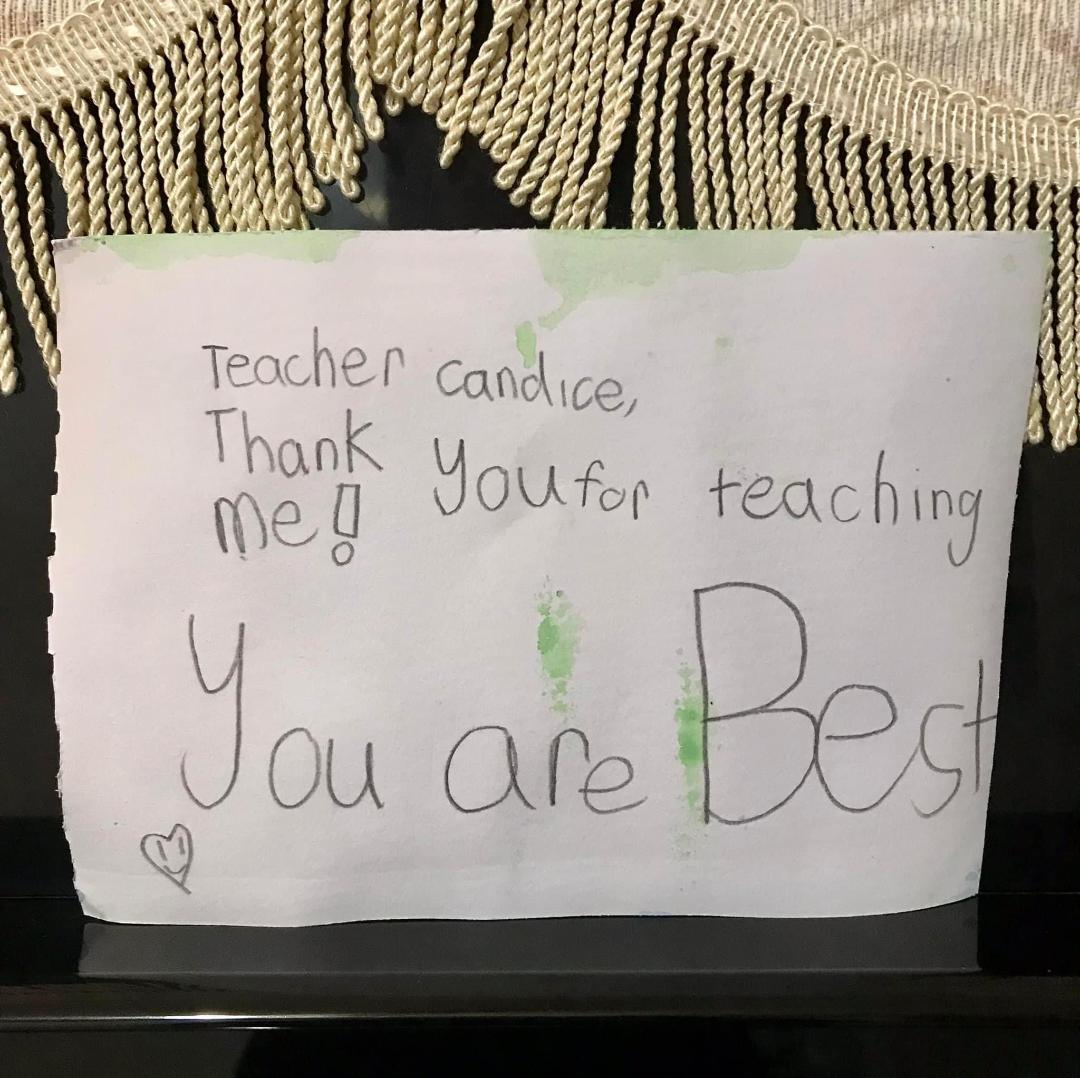 Teacher candice,
Thank you for teaching
me!
You are Best